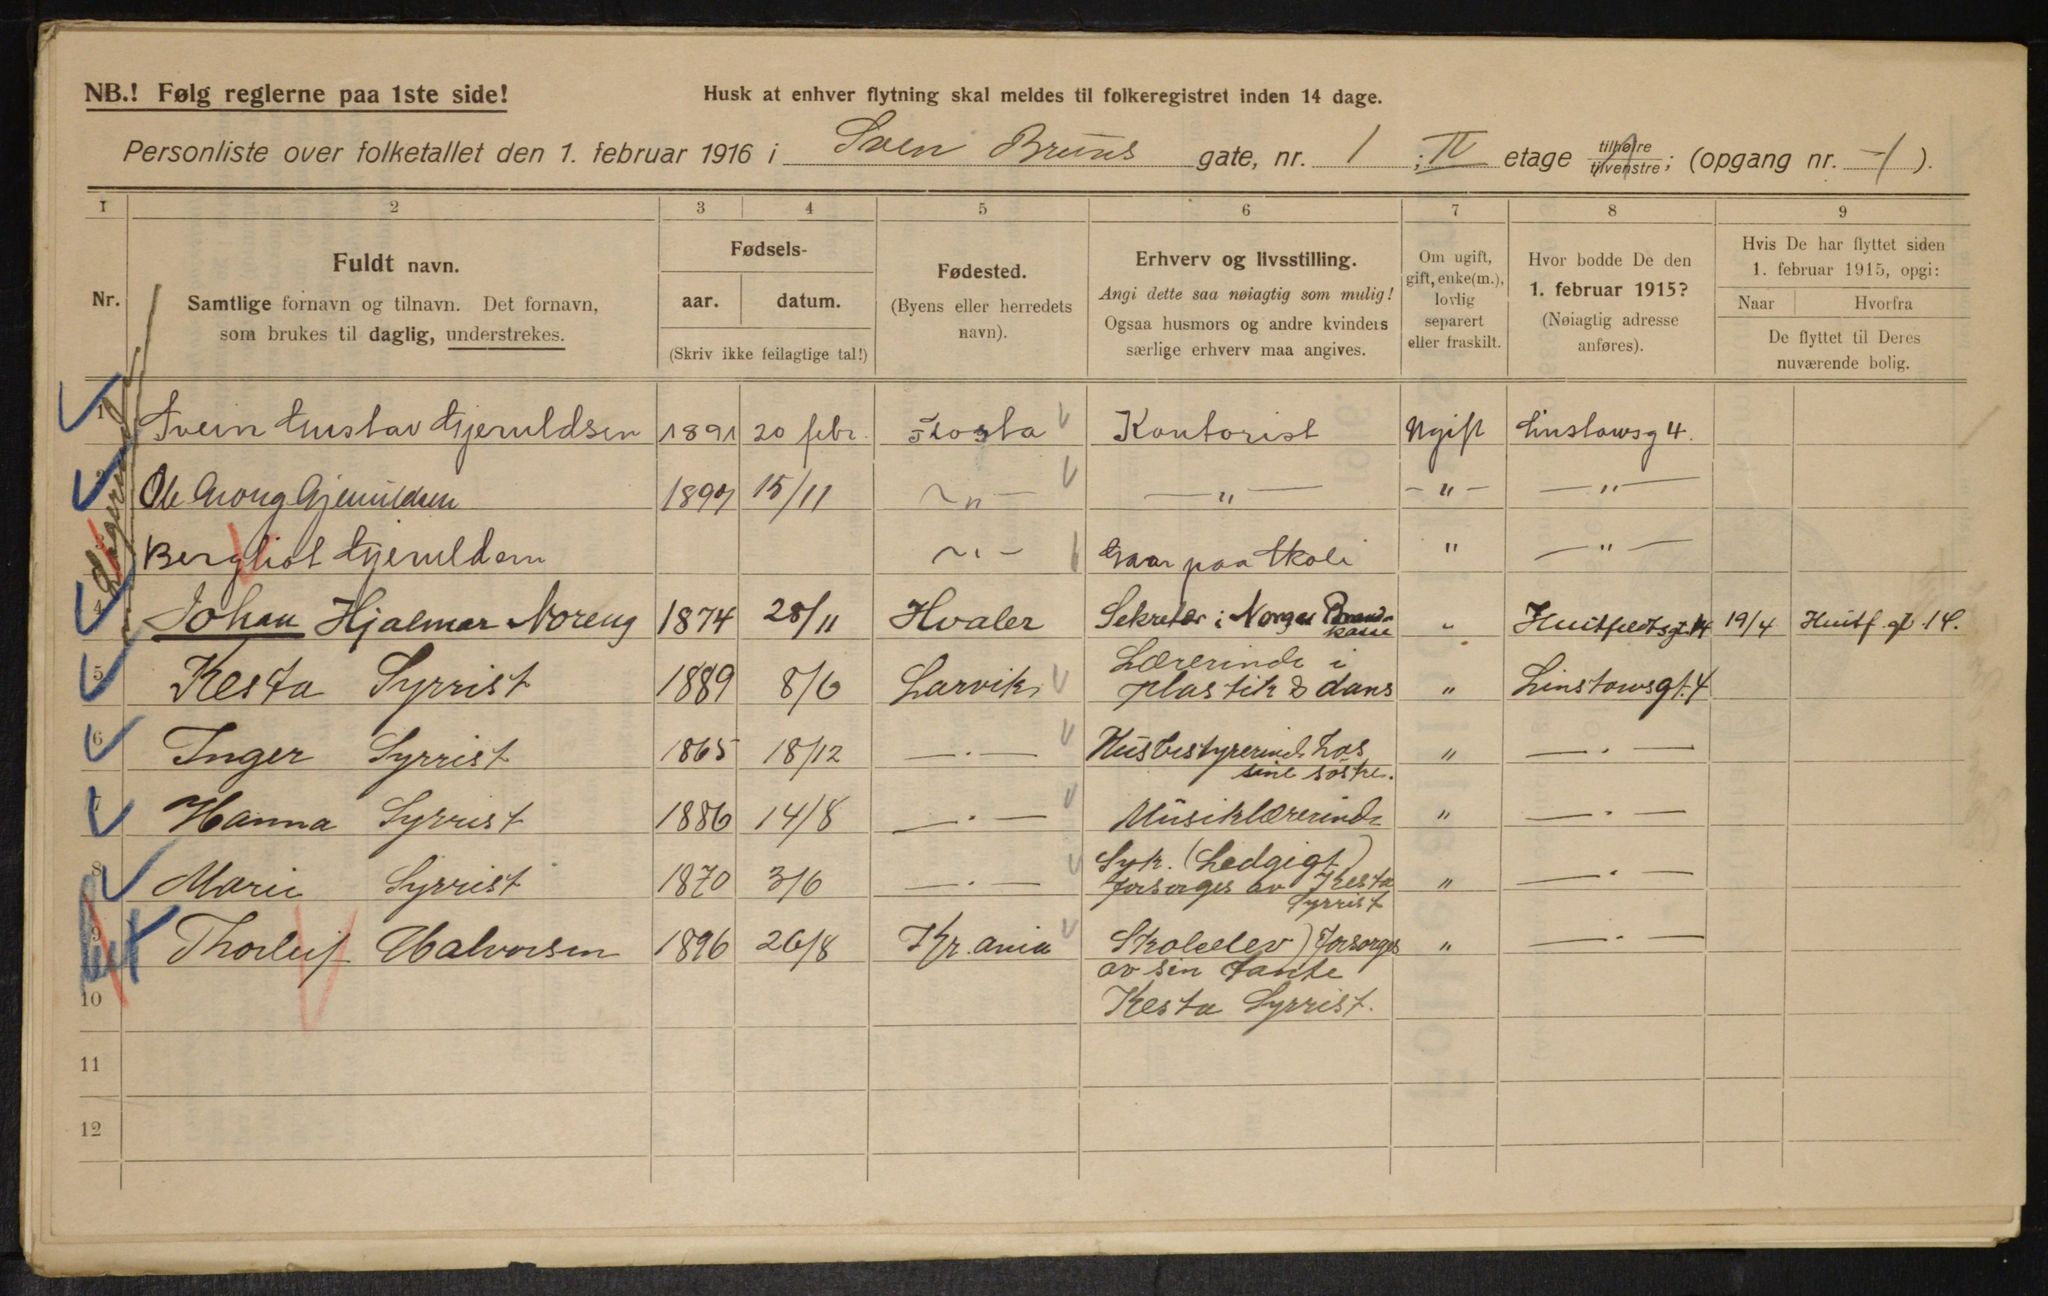 NB.! Følg reglerne paa 1ste side!
Husk at enhver flytning skal meldes til folkeregistret inden 14 dage.
Personliste over folketallet den 1. februar 1916 i Sven Bruns gate, nr. 1 ; II etage tilhøire tilvenstre; (opgang nr. 1).
1 2 3 4 5 6 7 8 9
Nr.
Fuldt navn.
Samtlige fornavn og tilnavn. Det fornavn,
som brukes til daglig, understrekes.
Fødsels-
aar. datum.
(Skriv ikke feilagtige tal!)
Fødested.
(Byens eller herredets
navn).
Erhverv og livsstilling.
Angi dette saa nøiagtig som mulig!
Ogsaa husmors og andre kvinders
særlige erhverv maa angives.
Om ugift,
gift, enke(m.),
lovlig
separert
eller fraskilt.
Hvor bodde De den
1. februar 1915?
(Nøiagtig adresse
anføres).
Hvis De har flyttet siden
1. februar 1915, opgi:
Naar Hvorfra
De flyttet til Deres
nuværende bolig.
1 Svein Gustav Gjeruldsen 1891 20 febr. Flosta Kontorist Ugift Linstowsg 4.
2 Ole Gjeruldsen 15/11 — " — — " — — " — — " —
3 Bergliot Gjeruldsen — " — Gaar paa Skole " — " —
4 Johan Hjalmar Noreng 1874 28/11 Hvaler Sekretær i Norges Brand-
kasse " Huitfeldtsgt. 14 19/4 Huitf. gt. 14.
5 Kesta Syrrist 1889 8/6 Larvik Lærerinde i
plastik & dans " Linstowsgt. 4
6 Inger Syrrist 1865 18/12 — . — Husbestyrerinde hos
sine søstre. " — . —
7 Hanna Syrrist 1886 14/8 — . — Musiklærerinde " — . —
8 Marie Syrrist 1870 3/6 — . — Syk. (Ledgigt)
forsørges av Kesta
Syrrist " — . —
9 Thorleif Halvorsen 1896 26/8 Kr.ania Skoleelev) forsørges
av sin tante
Kesta Syrrist. " — . —
10
11
12